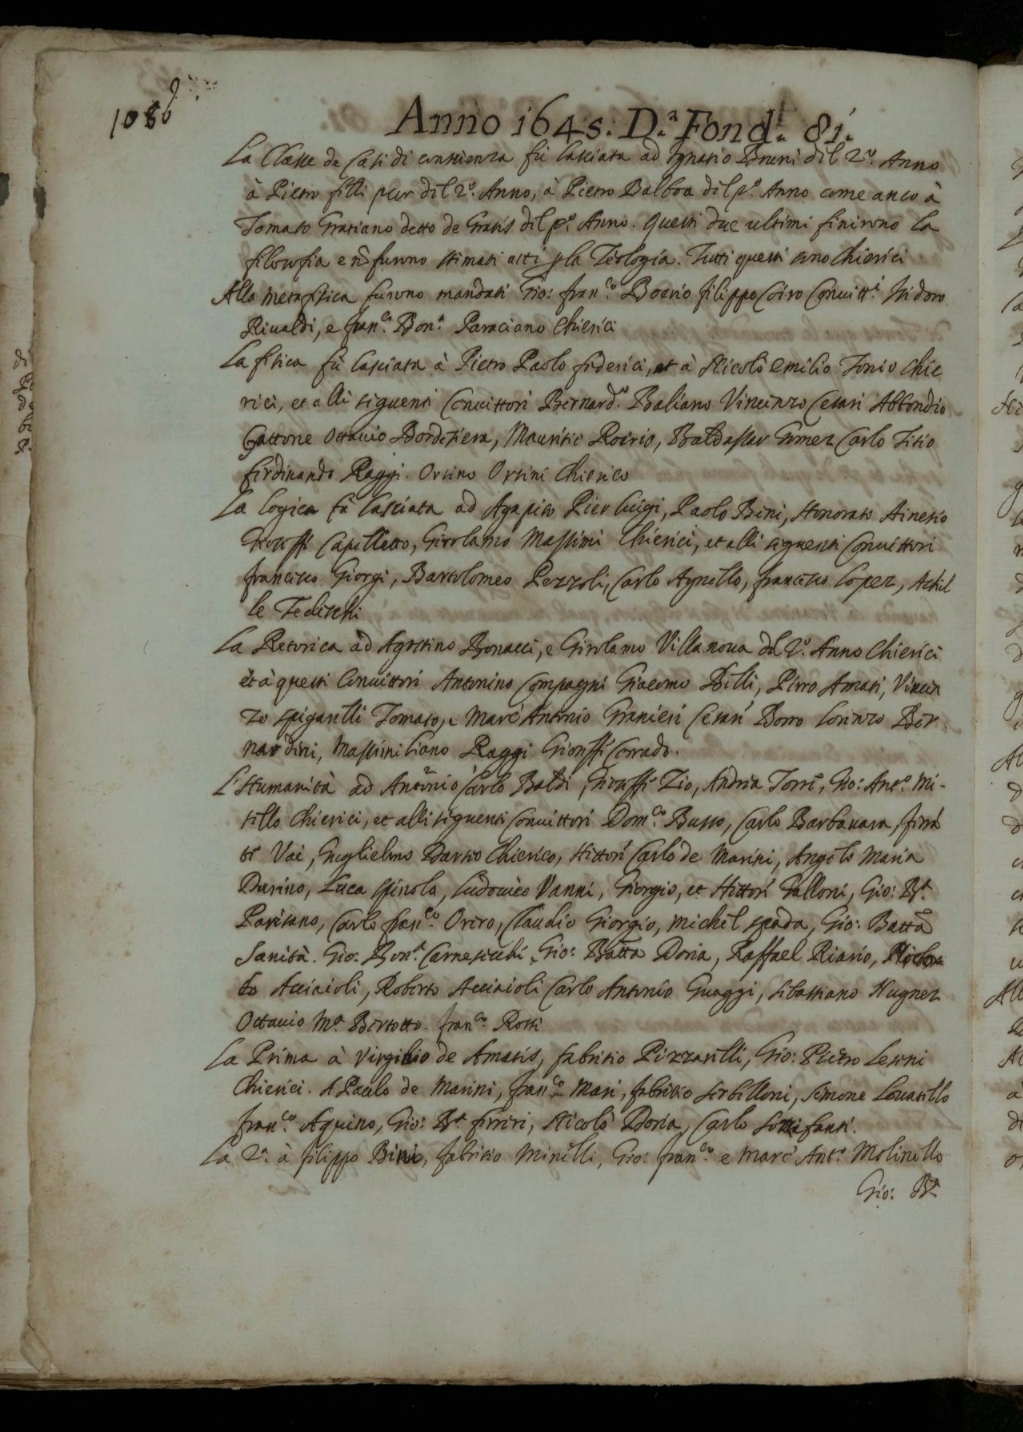 1086
Anno 1645. D.ª Fond.ᵉ 81.
La Classe de Casi di conscienza fù lasciata ad Ignatio Bruni del 2.º Anno
à Pietro filli pur del 2.º Anno, à Pietro Balboa del p.º Anno come anco à
Tomaso Gratiano detto de Gratis del p.º Anno. Questi due ultimi finirono la
filosofia e nō furono stimati atti p la Teologia. Tutti questi sono Chierici
Alla metafisica furono mandati Gio: fran.ᶜᵒ Boerio filippo Coiro Convitt.ⁱ Isidoro
Rivaldi, e fran.ᶜᵒ Bon.ª Paraciano Chierici
La fisica fù lasciata à Pietro Paolo federici, et à Nicolò emilio Tonio Chie
rici, et alli seguenti Convittori Bernard.º Baliano Vincenzo Cesari Abbondio
Gattone Ottavio Bordesiera, Mauritio Roerio, Baldassar Gomez Carlo Titio
ferdinando Raggi. Orsino Orsini Chierico
La logica fù lasciata ad Agapito Pier luigi, Paolo Bini, Honorato
Capelletto, Girolamo Massimi Chierici, et alli seguenti Convittori
francesco Giorgi, Bartolomeo Pezzoli, Carlo Agnello, francesco lopez, Achil
le Tedeschi
La Retorica ad Agostino Bonacci, e Girolamo Villanova del 2.º Anno Chierici
et à questi Convittori Antonino Compagni Giacomo Billi, Pirro Amati, Vincen
zo spigarelli Tomaso, e Marc' Antonio Granieri Cesari Borro Lorenzo Ber
nardini, Massimiliano Raggi Gioseffi Corrado.
L'Humanità ad Antonio Carlo Baldi, Gioseffi Zio, Andria Torr.ᵉ, Gio: Ant.º Mi-
sillo Chierici, et alli seguenti Convittori Dom.ᶜᵒ Busso, Carlo Barbavara, ferrā
te Vai, Guglielmo Chierico, Hettori Carlo de Marini, Angelo Maria
Durino, Luca Spinola, Ludovico Vanni, Giorgio, et Hettori Falloni, Gio: B.ª
Parisano, Carlo fran.ᶜᵒ Orero, Claudio Giorgio, Michel spada, Gio: Battā
Sanità. Gio. Bon.ª Carnesecchi, Gio: Battā Doria, Raffael Riario,
Acciaioli, Roberto Acciaioli Carlo Antonio Guaggi, sebastiano Nugnez
Ottavio M.ª Bertotto. fran.ᶜᵒ Rossi
La Prima à Virginio de Amatis, fabritio Pizzarelli, Gio: Pietro Lesini
Chierici. A Paolo de Marini, fran.ᶜᵒ Mari, fabritio serbelloni, Simone Lovatello
fran.ᶜᵒ Aquino, Gio: B.ª ferreri, Nicolò Doria, Carlo sottifanti.
La 2.ª à filippo Bini, fabritio Minelli, Gio: fran.ᶜᵒ e Marc' Ant.º Molinello
Gio: B.ª